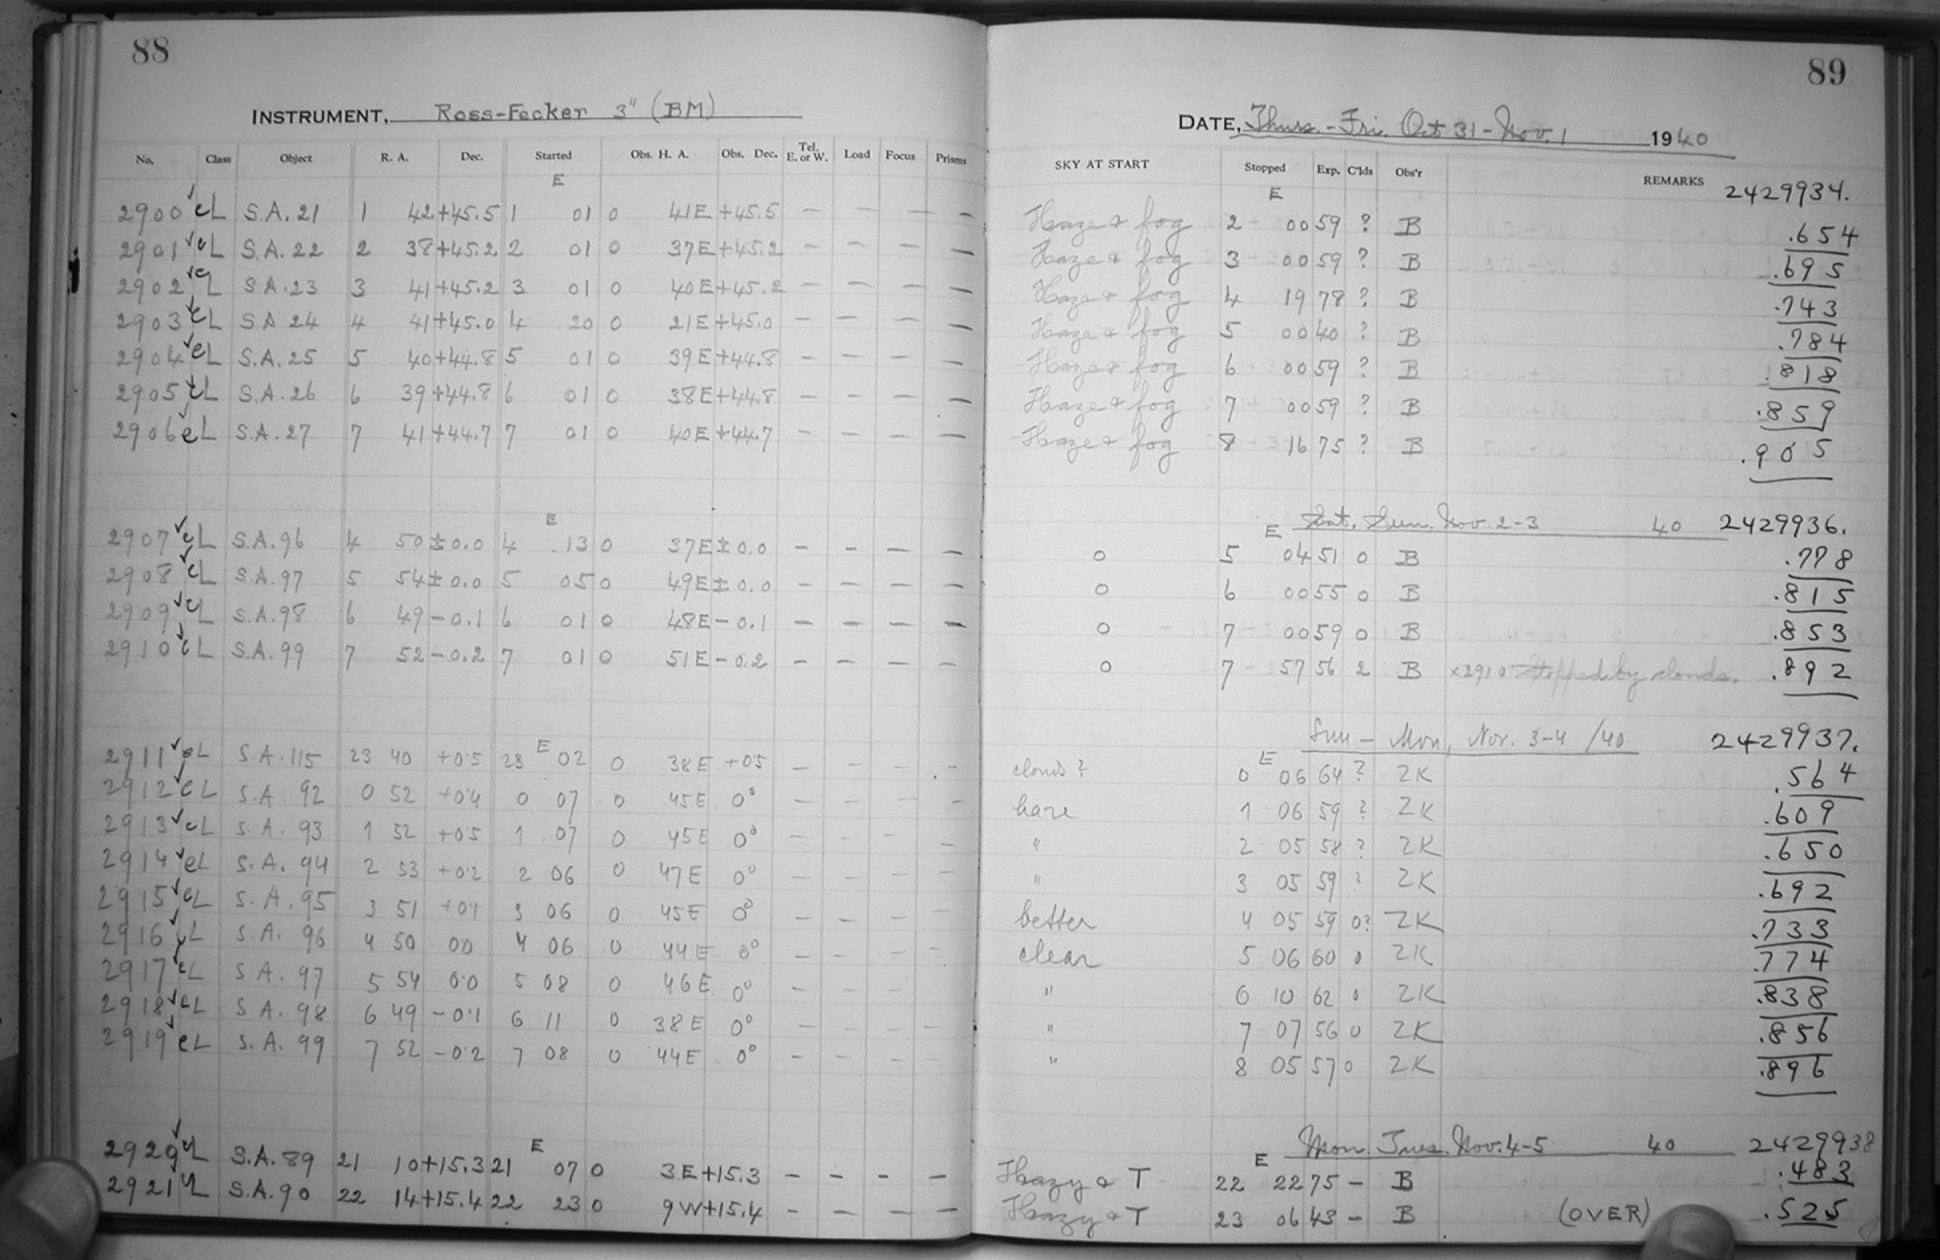 88
INSTRUMENT, Ross-Fecker 3" (BM)
No. Class Object R. A. Dec. Started Obs. H. A. Obs. Dec. Tel. E. or W. Load Focus Prisms
E
2900 ✓ cL S.A. 21 1 42 +45.5 1 01 0 41E +45.5 — — — —
2901 ✓ cL S.A. 22 2 38 +45.2 2 01 0 37E +45.2 — — — —
2902 ✓ cL S.A. 23 3 41 +45.2 3 01 0 40E +45.2 — — — —
2903 ✓ cL S.A. 24 4 41 +45.0 4 20 0 21E +45.0 — — — —
2904 ✓ cL S.A. 25 5 40 +44.8 5 01 0 39E +44.8 — — — —
2905 ✓ cL S.A. 26 6 39 +44.8 6 01 0 38E +44.8 — — — —
2906 ✓ cL S.A. 27 7 41 +44.7 7 01 0 40E +44.7 — — — —
E
2907 ✓ cL S.A. 96 4 50 ±0.0 4 13 0 37E ±0.0 — — — —
2908 ✓ cL S.A. 97 5 54 ±0.0 5 05 0 49E ±0.0 — — — —
2909 ✓ cL S.A. 98 6 49 -0.1 6 01 0 48E -0.1 — — — —
2910 ✓ cL S.A. 99 7 52 -0.2 7 01 0 51E -0.2 — — — —
E
2911 ✓ cL S.A. 115 23 40 +0.5 23 02 0 38E +0.5 — — — —
2912 ✓ cL S.A. 92 0 52 +0.4 0 07 0 45E 0° — — — —
2913 ✓ cL S.A. 93 1 52 +0.5 1 07 0 45E 0° — — — —
2914 ✓ cL S.A. 94 2 53 +0.2 2 06 0 47E 0° — — — —
2915 ✓ cL S.A. 95 3 51 +0.1 3 06 0 45E 0° — — — —
2916 ✓ cL S.A. 96 4 50 0.0 4 06 0 44E 0° — — — —
2917 ✓ cL S.A. 97 5 54 0.0 5 08 0 46E 0° — — — —
2918 ✓ cL S.A. 98 6 49 -0.1 6 11 0 38E 0° — — — —
2919 ✓ cL S.A. 99 7 52 -0.2 7 08 0 44E 0° — — — —
E
2920 ✓ cL S.A. 89 21 10 +15.3 21 07 0 3E +15.3 — — — —
2921 ✓ cL S.A. 90 22 14 +15.4 22 23 0 9W +15.4 — — — —
89
DATE, Thurs.-Fri. Oct 31 - Nov. 1 1940
SKY AT START Stopped Exp. C'lds Obs'r REMARKS
E 2429934.
Haze & fog 2 00 59 ? B .654
Haze & fog 3 00 59 ? B .695
Haze & fog 4 19 78 ? B .743
Haze & fog 5 00 40 ? B .784
Haze & fog 6 00 59 ? B .818
Haze & fog 7 00 59 ? B .859
Haze & fog 8 16 75 ? B .905
E Sat. Sun. Nov. 2-3 40 2429936.
0 5 04 51 0 B .778
0 6 00 55 0 B .815
0 7 00 59 0 B .853
0 7 57 56 2 B x2910 Stopped by clouds. .892
E Sun - Mon, Nov. 3-4 /40 2429937.
clouds? 0 06 64 ? ZK .564
haze 1 06 59 ? ZK .609
" 2 05 58 ? ZK .650
" 3 05 59 ? ZK .692
better 4 05 59 0? ZK .733
clear 5 06 60 0 ZK .774
" 6 10 62 0 ZK .838
" 7 07 56 0 ZK .856
" 8 05 57 0 ZK .896
E Mon. Tues. Nov. 4-5 40 2429938
Hazy & T 22 22 75 — B .483
Hazy & T 23 06 43 — B (OVER) .525